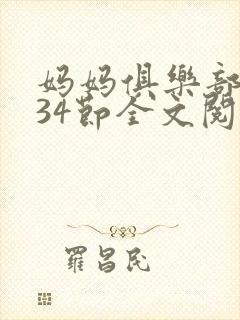 妈妈俱樂部
34節全文閱
羅昌民